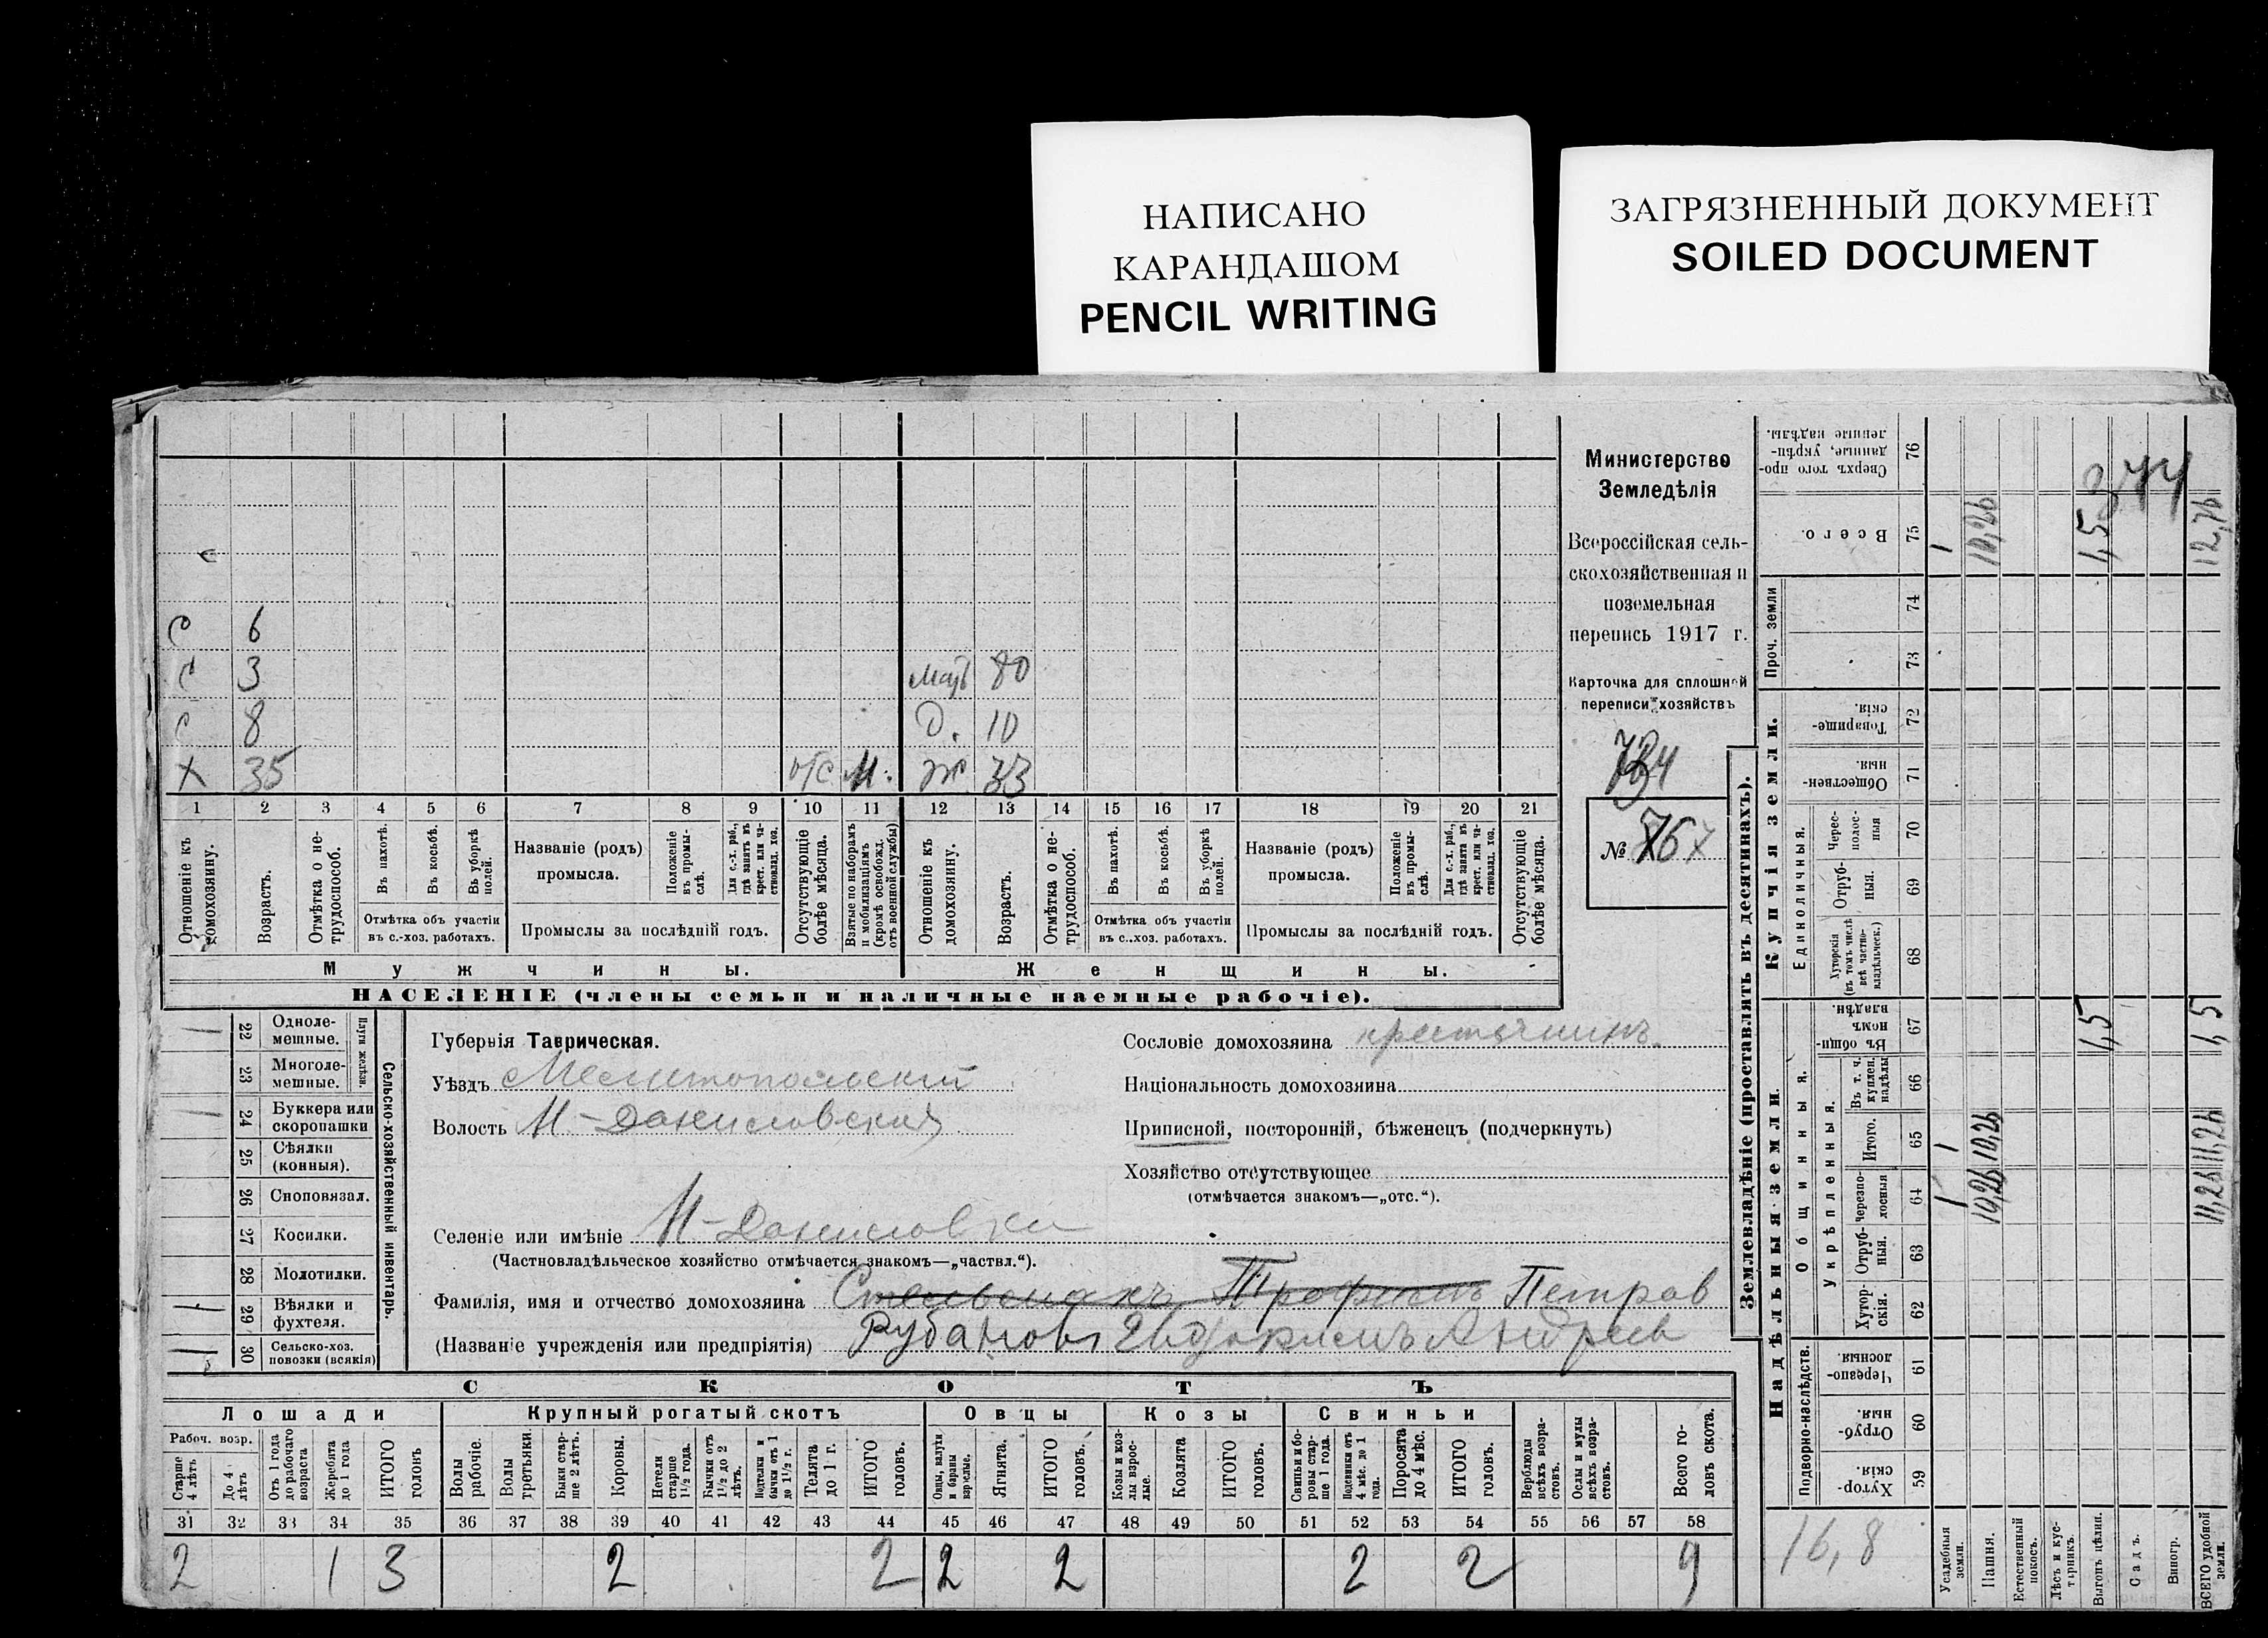 НАПИСАНО
КАРАНДАШОМ
PENCIL WRITING
ЗАГРЯЗНЕННЫЙ ДОКУМЕНТ
SOILED DOCUMENT
с 6
с 3 мать 80
с 8 д. 10
х 35 отс м. ж. 33
1 2 3 4 5 6 7 8 9 10 11 12 13 14 15 16 17 18 19 20 21
Отношеніе къ домохозяину.
Возрастъ.
Отмѣтка о не-трудоспособ.
Въ пахотѣ.
Въ косьбѣ.
Въ уборкѣ полей.
Отмѣтка объ участіи
въ с.-хоз. работахъ.
Названіе (родъ)
промысла.
Положеніе въ промы-слѣ.
Для с.-х. раб., гдѣ занятъ въ крест. или ча-стновлад. хоз.
Промыслы за послѣдній годъ.
Отсутствующіе болѣе мѣсяца.
Взятые по наборамъ и мобилизаціямъ (кромѣ освобожд. отъ военной службы)
Отношеніе къ домохозяину.
Возрастъ.
Отмѣтка о не-трудоспособ.
Въ пахотѣ.
Въ косьбѣ.
Въ уборкѣ полей.
Отмѣтка объ участіи
въ с.-хоз. работахъ.
Названіе (родъ)
промысла.
Положеніе въ промы-слѣ.
Для с.-х. раб., гдѣ занята въ крест. или ча-стновлад. хоз.
Промыслы за послѣдній годъ.
Отсутствующіе болѣе мѣсяца.
Мужчины. Женщины.
НАСЕЛЕНІЕ (члены семьи и наличные наемные рабочіе).
Министерство
Земледѣлія
Всероссійская сель-
скохозяйственная и
поземельная
перепись 1917 г.
Карточка для сплошной
переписи хозяйствъ
№ 767
22 Одноле-мешные.
23 Многоле-мешные.
Плуги желѣзн.
24 Буккера или скоропашки
25 Сѣялки (конныя).
26 Сноповязал.
27 Косилки.
28 Молотилки.
29 Вѣялки и фухтеля.
30 Сельско-хоз. повозки (всякія)
Сельско-хозяйственный инвентарь.
Губернія Таврическая.
Уѣздъ Мелитопольскій
Волость Н-Даниловская
Селеніе или имѣніе Н-Даниловка
(Частновладѣльческое хозяйство отмѣчается знакомъ—„частвл.“).
Фамилія, имя и отчество домохозяина Трофимъ Петров
(Названіе учрежденія или предпріятія) Рубановъ Евдокимъ Андреев
Сословіе домохозяина крестьянинъ.
Національность домохозяина
Приписной, посторонній, бѣженецъ (подчеркнуть)
Хозяйство отсутствующее
(отмѣчается знакомъ—„отс.“).
СКОТЪ
Лошади Крупный рогатый скотъ Овцы Козы Свиньи
Рабоч. возр.
Старше 4 лѣтъ
До 4 лѣтъ
Отъ 1 года до рабочаго возраста
Жеребята до 1 года
ИТОГО головъ
Волы рабочіе.
Волы третьяки.
Быки стар-ше 2 лѣтъ.
Коровы.
Нетели старше 1½ года.
Бычки отъ 1½ до 2 лѣтъ.
Подтелки и бычки отъ 1 до 1½ г.
Телята до 1 г.
ИТОГО головъ.
Овцы, валухи и бараны взрослые.
Ягнята.
ИТОГО головъ.
Козы и коз-лы взрос-лые.
Козлята
ИТОГО головъ.
Свиньи и бо-ровы стар-ше 1 года.
Подсвинки отъ 4 мѣс. до 1 года.
Поросята до 4 мѣс.
ИТОГО головъ.
Верблюды всѣхъ возра-стовъ.
Ослы и мулы всѣхъ возра-стовъ.
Всего го-ловъ скота.
31 32 33 34 35 36 37 38 39 40 41 42 43 44 45 46 47 48 49 50 51 52 53 54 55 56 57 58
2 1 3 2 2 2 2 2 2 9
Землевладѣніе (проставлять въ десятинахъ).
Надѣльныя земли. Купчія земли.
Проч. земли
Подворно-наслѣдств.
Общинныя.
Укрѣпленныя.
Единоличныя.
Хутор-скія. 59
Отруб-ныя. 60
Черезпо-лосныя. 61
Хутор-скія. 62
Отруб-ныя. 63
Черезпо-лосныя 64
Итого. 65
Въ т. ч. куплен. надѣлы 66
Въ общин-номъ владѣн. 67
Хуторскія (въ томъ числѣ всѣ частно-владѣльческ.) 68
Отруб-ныя. 69
Черес-полос-ныя 70
Обществен-ныя. 71
Товарище-скія. 72
73
74
Всего. 75
Сверхъ того про-данные, укрѣп-ленные надѣлы. 76
16,8
Усадебныя земли. 1 1 1
Пашня. 10,26 10,26 10,26
Естественный покосъ.
Лѣсъ и кус-тарникъ.
Выгонъ цѣлин. 1,5 1,5
Садъ.
Виногр.
ВСЕГО удобной земли. 11,26 11,26 1,5 12,76
344